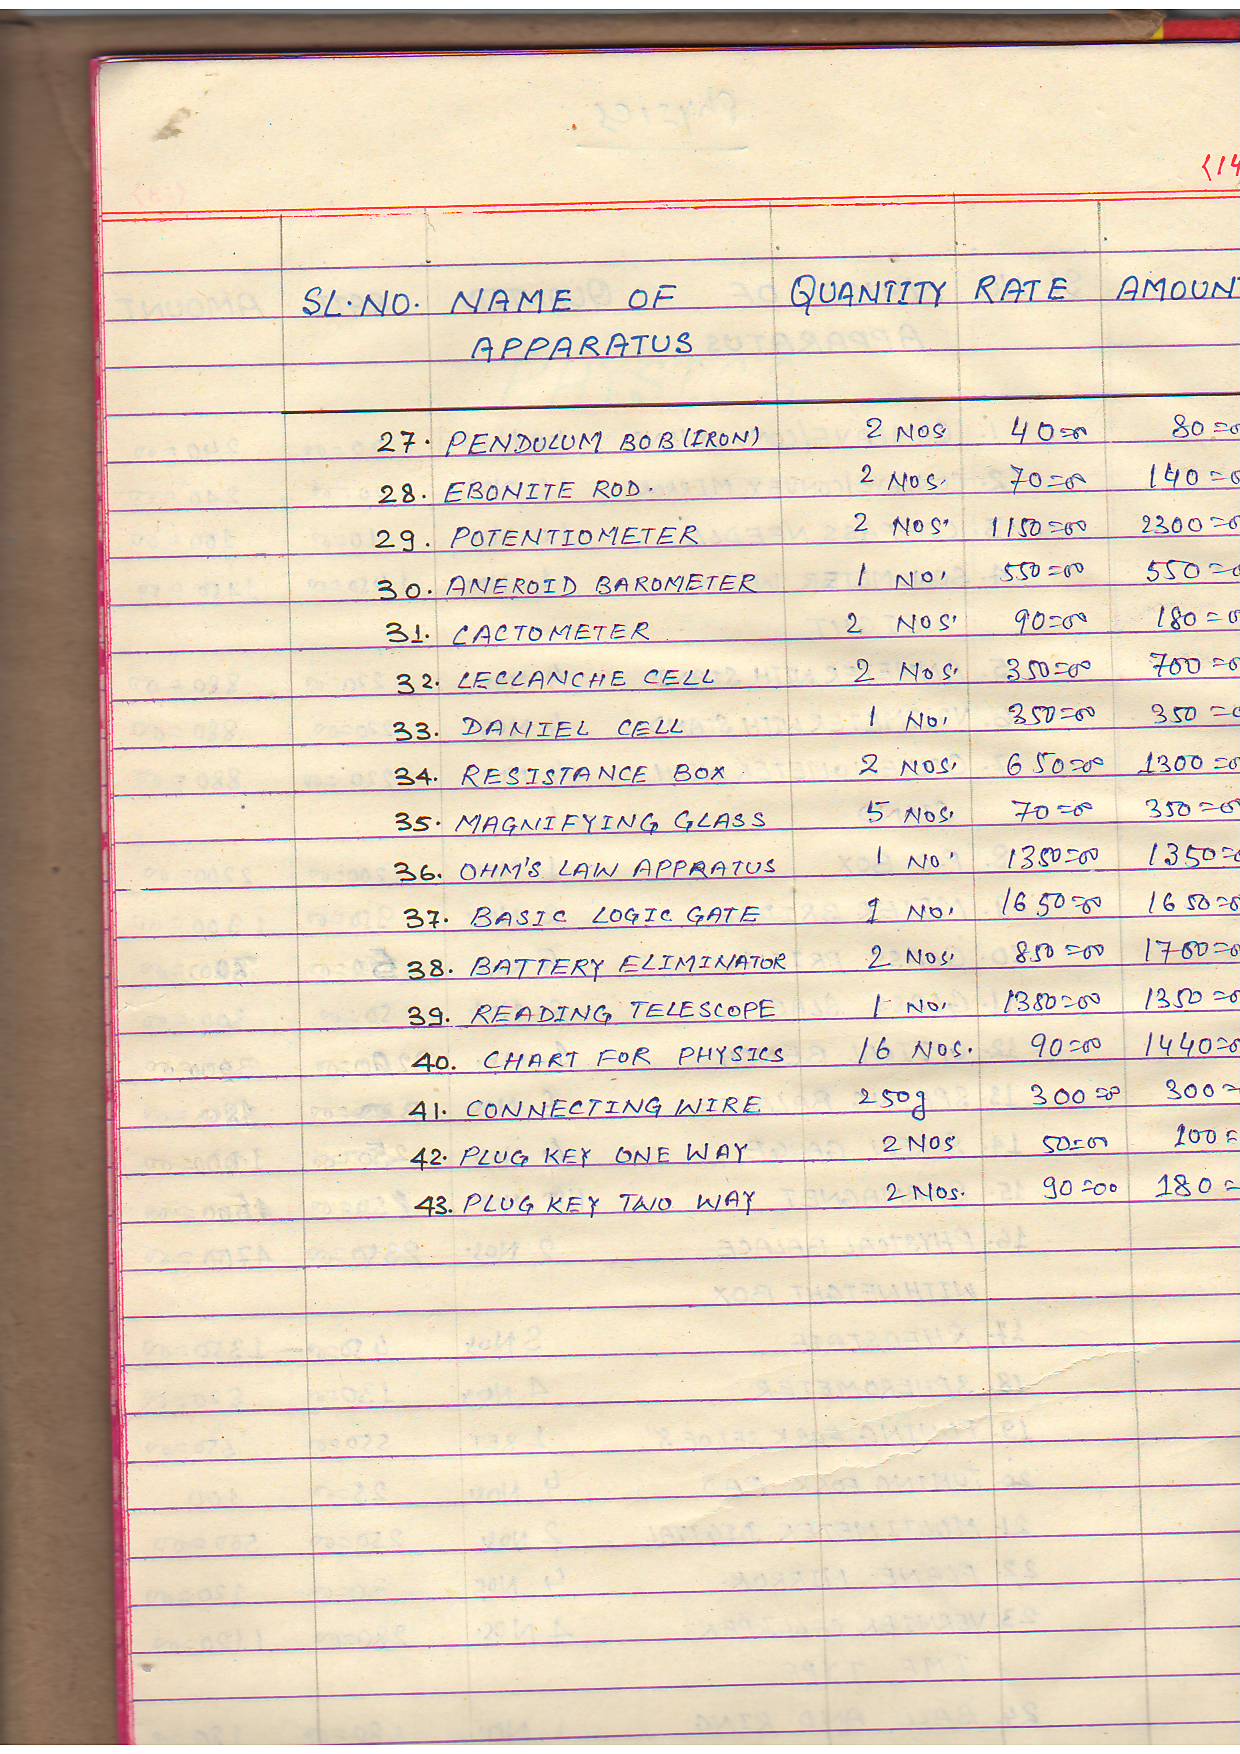 (14
SL.NO. NAME OF QUANTITY RATE AMOUN
APPARATUS
27. PENDULUM BOB (IRON) 2 NOS 40=00 80=0
28. EBONITE ROD. 2 NOS. 70=00 140=0
29. POTENTIOMETER 2 NOS. 1150=00 2300=0
30. ANEROID BAROMETER 1 NO. 550=00 550=0
31. CACTOMETER 2 NOS. 90=00 180=0
32. LECLANCHE CELL 2 NOS. 350=00 700=0
33. DANIEL CELL 1 NO. 350=00 350=0
34. RESISTANCE BOX 2 NOS. 650=00 1300=0
35. MAGNIFYING GLASS 5 NOS. 70=00 350=0
36. OHM'S LAW APPRATUS 1 NO. 1350=00 1350=0
37. BASIC LOGIC GATE 1 NO. 1650=00 1650=0
38. BATTERY ELIMINATOR 2 NOS. 850=00 1700=0
39. READING TELESCOPE 1 NO. 1350=00 1350=0
40. CHART FOR PHYSICS 16 NOS. 90=00 1440=0
41. CONNECTING WIRE 250g 300=00 300=
42. PLUG KEY ONE WAY 2 NOS 50=00 100=
43. PLUG KEY TWO WAY 2 NOS. 90=00 180=